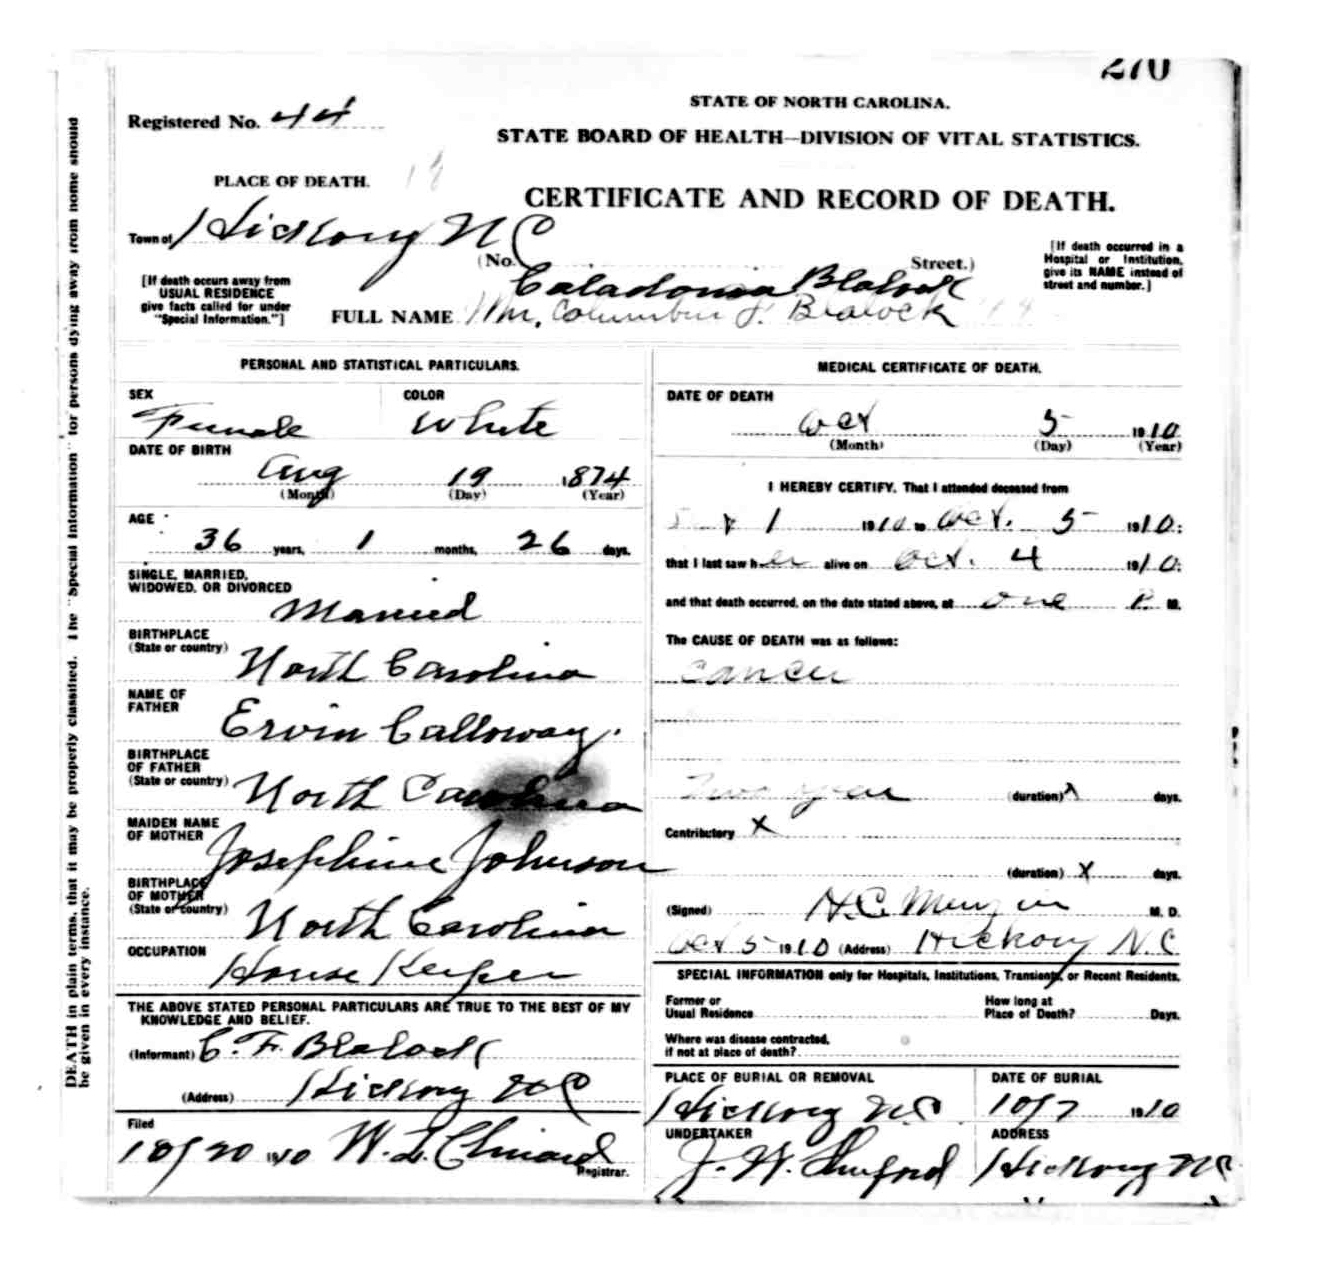 270
STATE OF NORTH CAROLINA.
Registered No. 44
STATE BOARD OF HEALTH—DIVISION OF VITAL STATISTICS.
PLACE OF DEATH. 18
CERTIFICATE AND RECORD OF DEATH.
Town of Hickory N C
(No. Street.)
[If death occurred in a
Hospital or Institution,
give its NAME instead of
street and number.]
[If death occurs away from
USUAL RESIDENCE
give facts called for under
"Special Information."]
Caladonia Blalock
FULL NAME Mrs. Columbus F. Blalock
PERSONAL AND STATISTICAL PARTICULARS.
SEX
Female
COLOR
White
DATE OF BIRTH
Aug 19 1874
(Month) (Day) (Year)
AGE
36 years, 1 months, 26 days.
SINGLE, MARRIED,
WIDOWED, OR DIVORCED
Married
BIRTHPLACE
(State or country)
North Carolina
NAME OF
FATHER
Ervin Calloway.
BIRTHPLACE
OF FATHER
(State or country)
North Carolina
MAIDEN NAME
OF MOTHER
Josephine Johnson
BIRTHPLACE
OF MOTHER
(State or country)
North Carolina
OCCUPATION
House Keeper
THE ABOVE STATED PERSONAL PARTICULARS ARE TRUE TO THE BEST OF MY
KNOWLEDGE AND BELIEF.
(Informant) C. F. Blalock
(Address) Hickory N C
Filed
10/20 1910 W. L. Clinard
Registrar.
MEDICAL CERTIFICATE OF DEATH.
DATE OF DEATH
Oct 5 1910
(Month) (Day) (Year)
I HEREBY CERTIFY, That I attended deceased from
1 1910 to Oct. 5 1910:
that I last saw her alive on Oct. 4 1910:
and that death occurred, on the date stated above, at one P. M.
The CAUSE OF DEATH was as follows:
Cancer
Two year (duration) x days.
Contributory x
(duration) x days.
(Signed) H. C. Menzies M. D.
Oct 5 1910 (Address) Hickory N.C
SPECIAL INFORMATION only for Hospitals, Institutions, Transients, or Recent Residents.
Former or
Usual Residence
How long at
Place of Death? Days.
Where was disease contracted,
if not at place of death?
PLACE OF BURIAL OR REMOVAL
Hickory N C
DATE OF BURIAL
10/7 1910
UNDERTAKER
J. W. Shuford
ADDRESS
Hickory N C
DEATH in plain terms, that it may be properly classified. The "Special Information" for persons dying away from home should
be given in every instance.